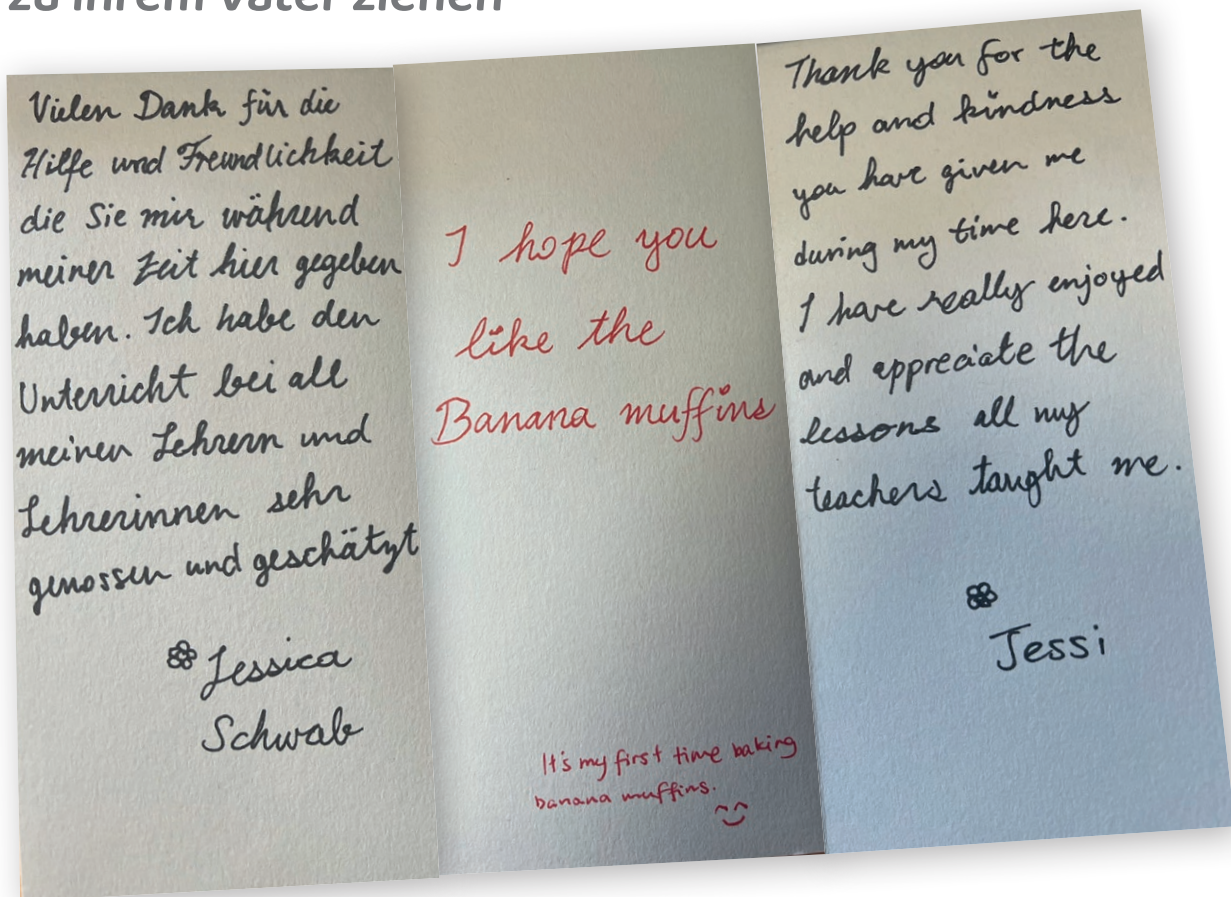 zu ihrem Vater ziehen
Vielen Dank für die
Hilfe und Freundlichkeit
die Sie mir während
meiner Zeit hier gegeben
haben. Ich habe den
Unterricht bei all
meinen Lehrern und
Lehrerinnen sehr
genossen und geschätzt
Jessica
Schwab
I hope you
like the
Banana muffins
It's my first time baking
banana muffins.
Thank you for the
help and kindness
you have given me
during my time here.
I have really enjoyed
and appreciate the
lessons all my
teachers taught me.
Jessi